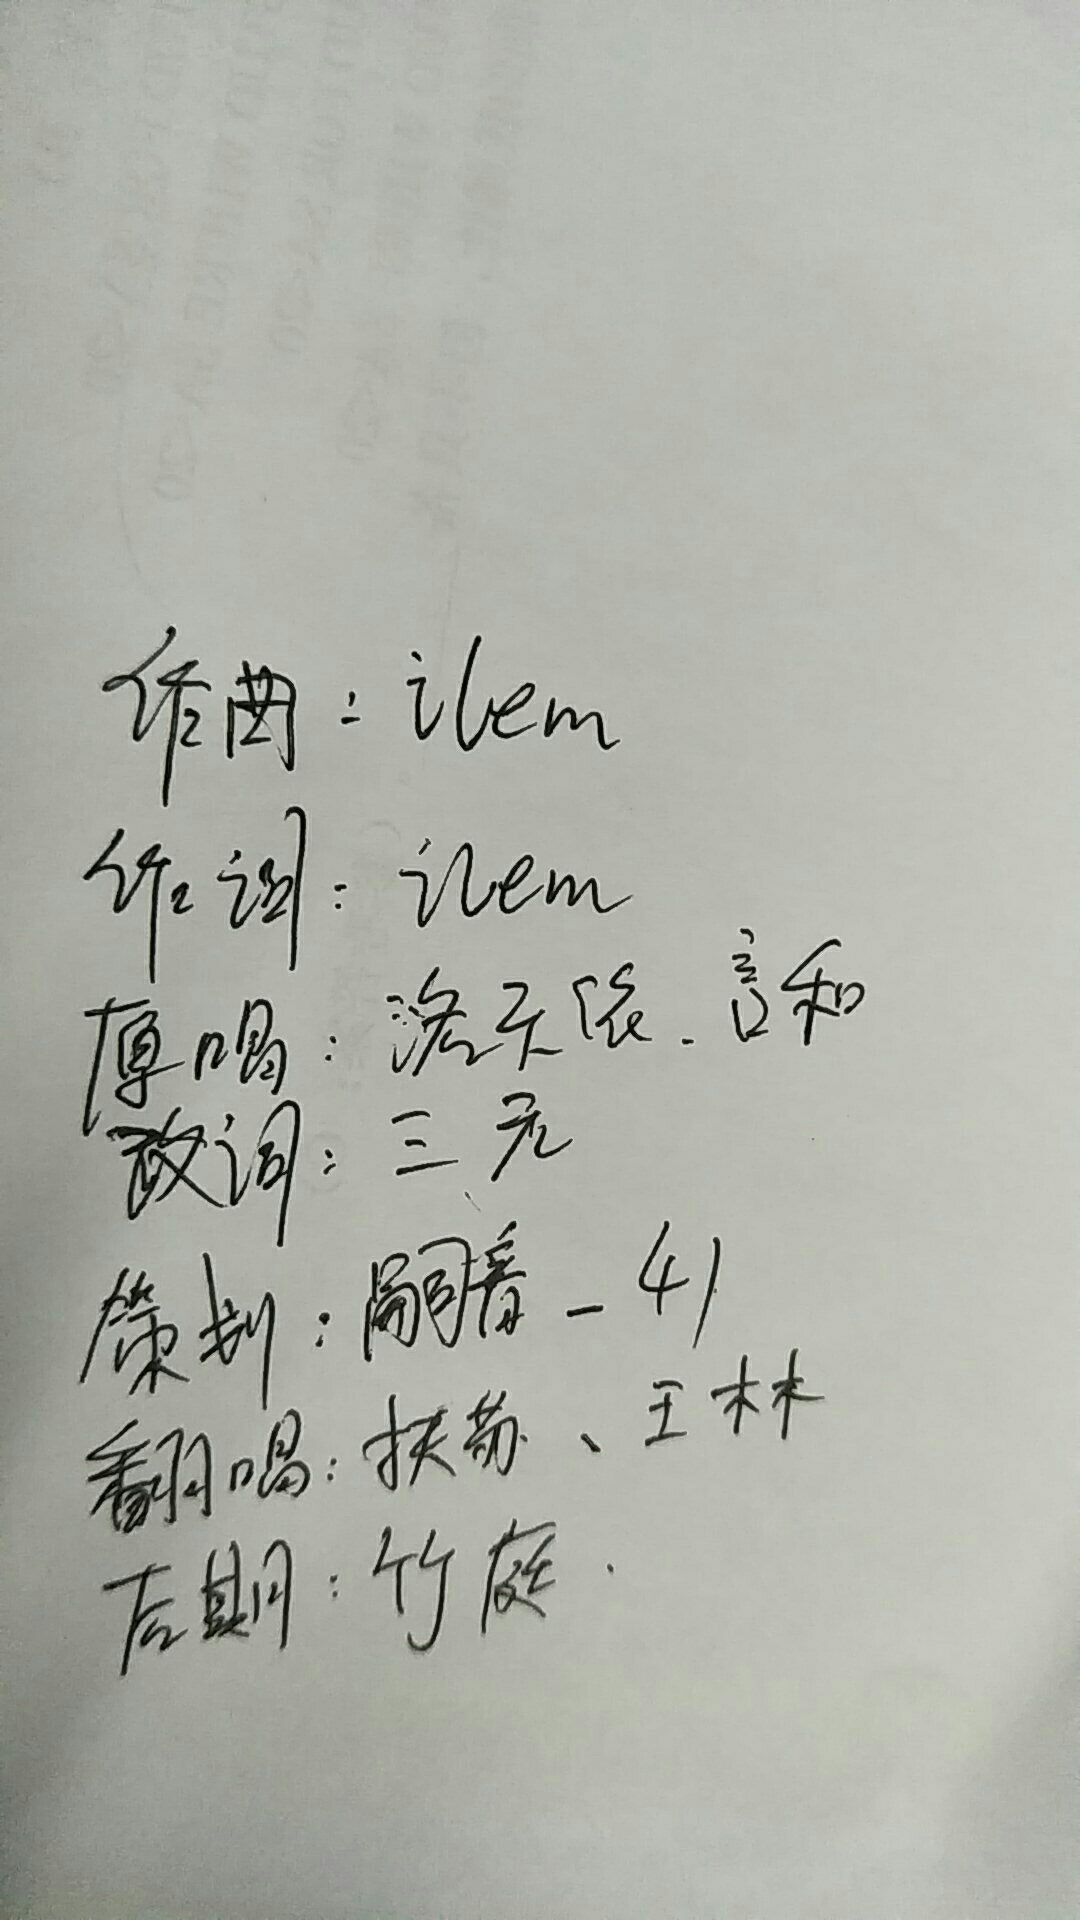 作曲：ilem
作词：ilem
原唱：洛天依.言和
改词：三无
策划：嗣音_41
翻唱：扶苏、王林
后期：竹庭.